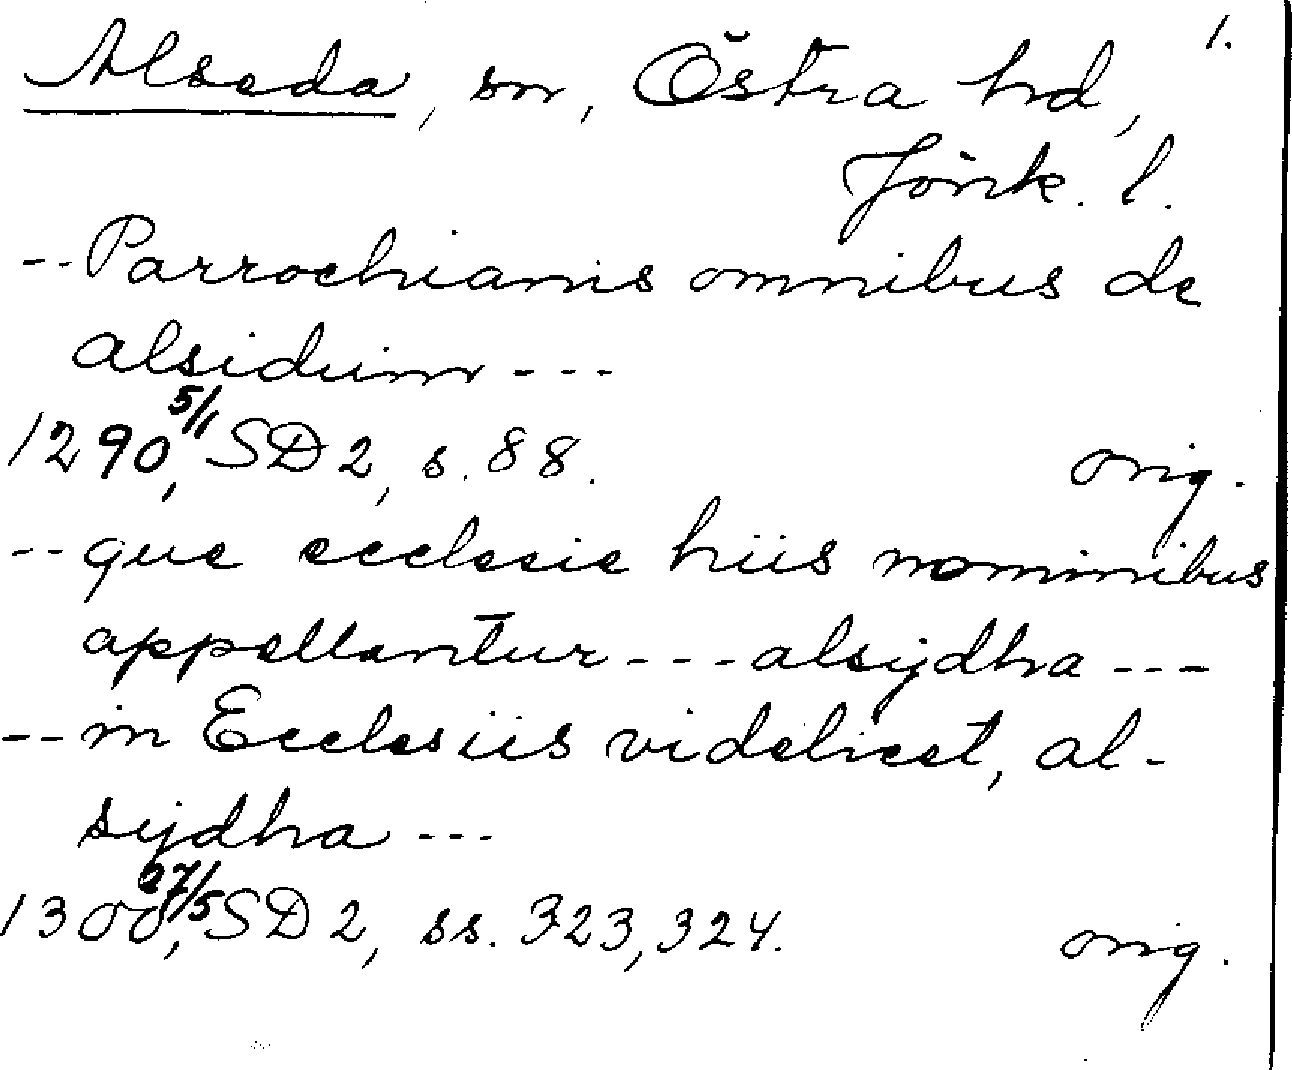 1.
Alseda, sn, Östra hd,
Jönk. l.
-- Parrochianis omnibus de
alsidium ---
1290 5/1, SD 2, s. 88. orig.
-- que ecclesie hiis nominibus
appellantur --- alsijdha ---
-- in Ecclesiis videlicet, al-
sijdha ---
1300 27/5, SD 2, ss. 323, 324. orig.